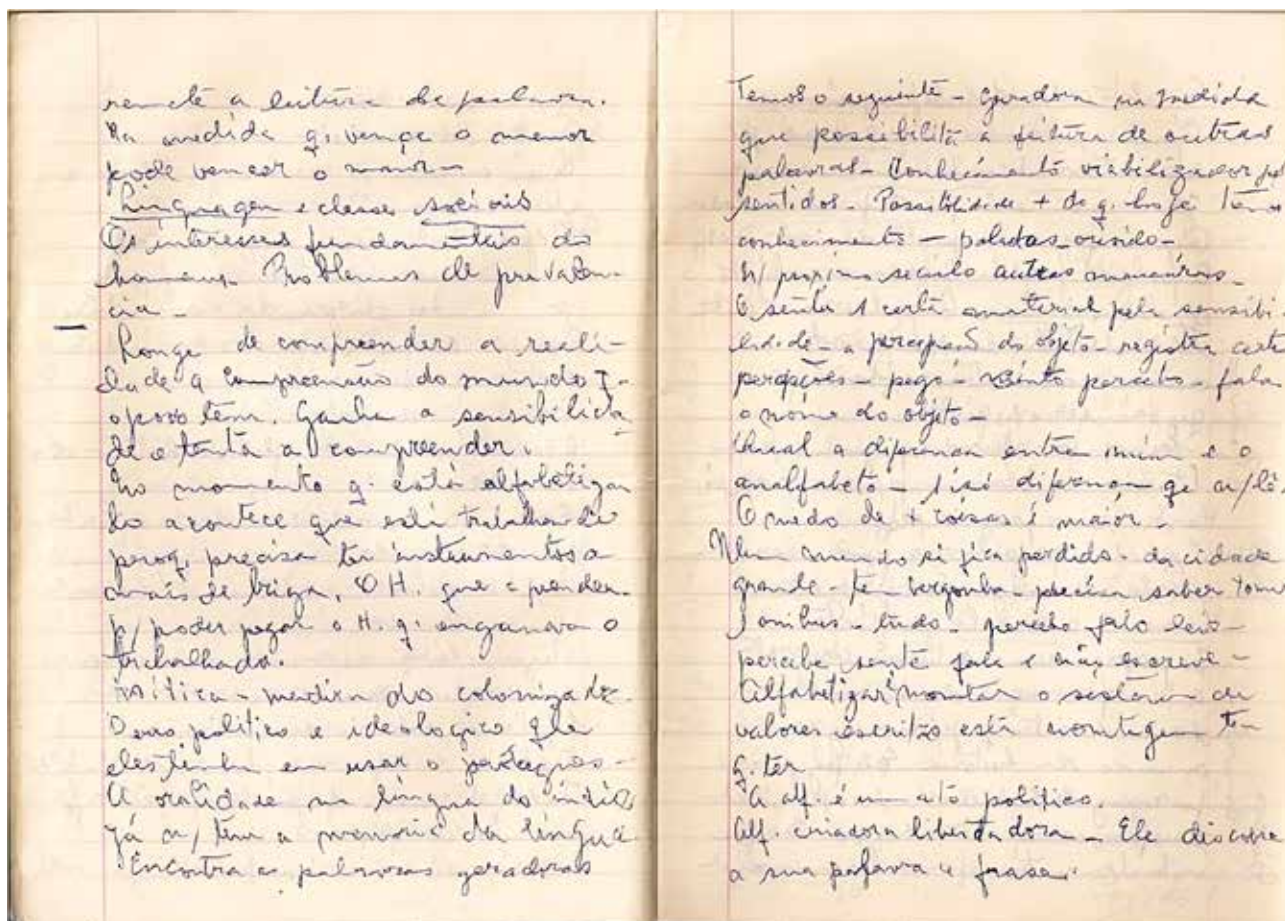 remete a leitura da palavra.
Na medida q. vence o menor
pode vencer o maior –
Linguagem e classes sociais
Os interesses fundamentais do
homem. Problemas de prevalen-
cia –
– Longe de compreender a reali-
dade a compreensão do mundo q.
o povo tem. Ganha a sensibilida
de e tenta a compreender.
No momento q. está alfabetizan
do acontece que está trabalhando
porq. precisa ter instrumentos a
mais de briga. O H. que aprender
p/ poder pegar o H. q. enganava o
trabalhado.
mítica – do colonizador
politico e ideologico que
eles tinha em usar o portugues –
A oralidade na língua do índio,
Já n/ tem a memoria da língua.
Encontra as palavras geradoras
Temos o seguinte – Geradora na medida
que possibilita a leitura de outras
palavras – Conhecimento viabilizador
sentidos – Possibilidade + do q. hoje temos
conhecimento – paladas
N/ proximo seculo outras
E senta 1 certa material pela sensibi
lidade – a percepção do objeto – registra certa
percepções – pego – sinto percebo – fala
o nome do objeto –
Qual a diferença entre mim e o
analfabeto – 1 só diferença qe n/ lê.
O medo de + coisas é maior –
Num mundo si fica perdido – da cidade
grande – te bergonha – precisa saber toma
1 onibus – tudo – percebo falo leio –
percebe sente fala e não escreve –
Alfabetizar montar o sistema de
valores escritão está montagem te
q. ter
A alf. é um ato politico.
Alf. criadora libertadora – Ele discobre
a sua palavra e frase.